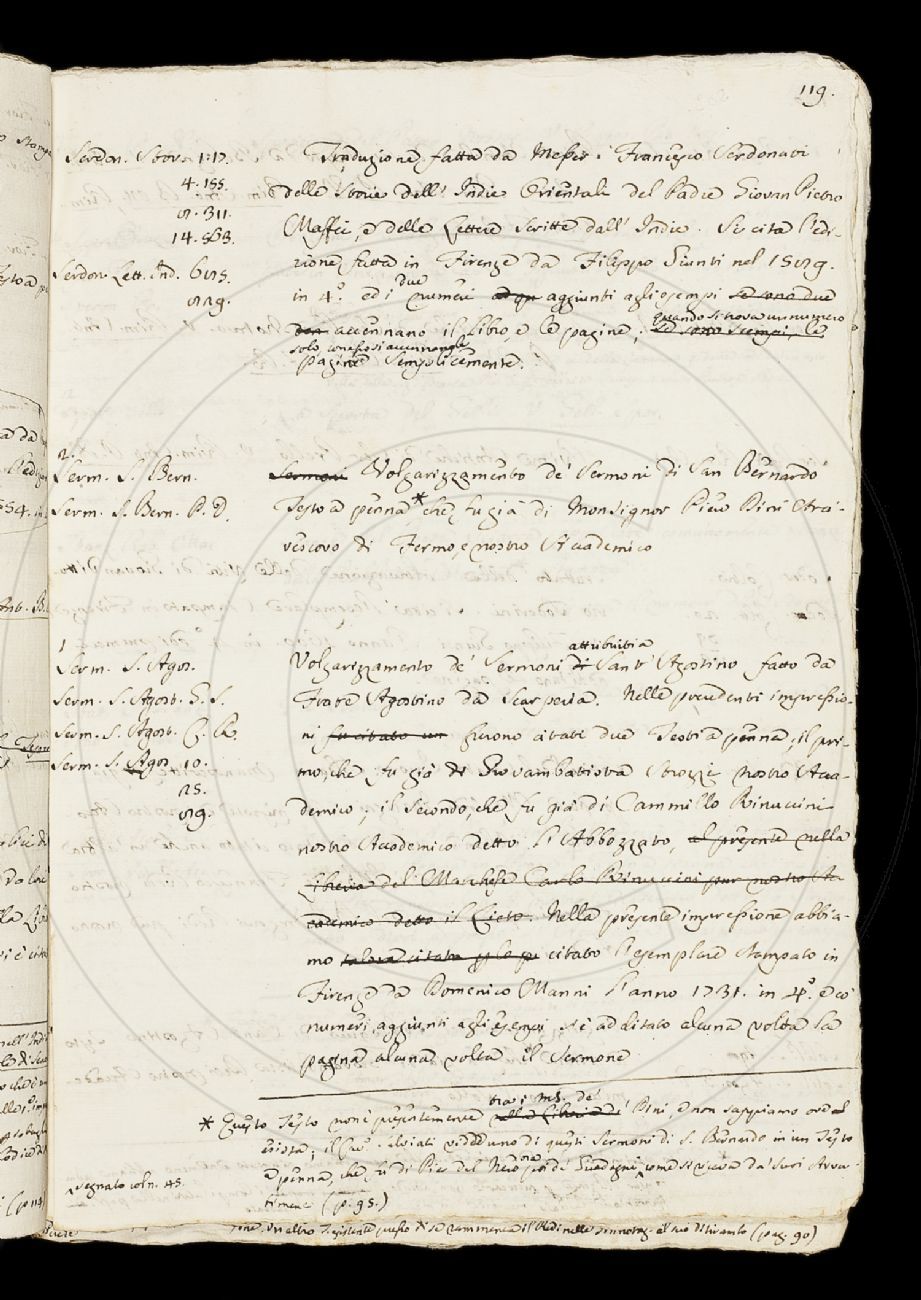 119.
Serdon. Stor. 1. 17.
4. 155.
311.
14. 563.
Serdon. Lett. Ind.
Traduzione fatta da Messer Francesco Serdonati
delle Storie dell' Indie Orientali del Padre Giovan Pietro
Maffei, e delle Lettere scritte dall' Indie. Si cita l'edi-
zione fatta in Firenze da Filippo Giunti nel
in 4.° ed i due numeri aggiunti agli esempi se sono due
accennano il libro, e le pagine; quando si trova un numero
se sono scempi, le
solo
pagine semplicemente.
2.
Serm. S. Bern.
Serm. S. Bern. P. D.
Sermoni Volgarizzamento de' Sermoni di San Bernardo
Testo a penna * che fu già di Monsignor Piero Dini Arci-
vescovo di Fermo, e nostro Accademico
1
Serm. S. Agos.
Serm. S. Agost. G. S.
Serm. S. Agost. C. R.
Serm. S. Agos. 10.
25.
Volgarizzamento de' Sermoni di attribuiti a Sant' Agostino fatto da
Frate Agostino da Scarperia. Nelle precedenti impressio-
ni fu citato un furono citati due Testi a penna; il pri-
mo, che fu già di Giovambatista Strozzi nostro Acca-
demico; il secondo, che fu già di Cammillo Rinuccini
nostro Accademico detto l'Abbozzato, al presente nella
Libreria del Marchese Carlo Rinuccini pur nostro Ac-
cademico detto il Lieto. Nella presente impressione abbia-
mo talora citato citato l'esemplare stampato in
Firenze da Domenico Manni l'anno 1731. in 4.° e co'
numeri aggiunti agli esempi si è additato alcuna volta la
pagina alcuna volta il Sermone
* Questo Testo non è presentemente nella Libreria de' tra i MS. de' Dini, e non sappiamo ove
esista; il Cav. Salviati vidde uno di questi Sermoni di S. Bernardo in un Testo
a penna, che fu di Pier del Nero come si ricava da' suoi Avver-
timenti (p. 95.)
segnato col n. 45.
(pag. 90)